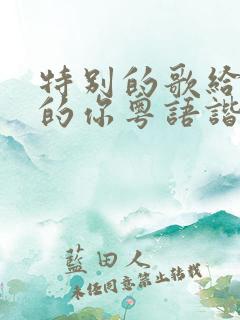 特别的歌给
的你粤語諧
藍田人
未经同意禁止转载